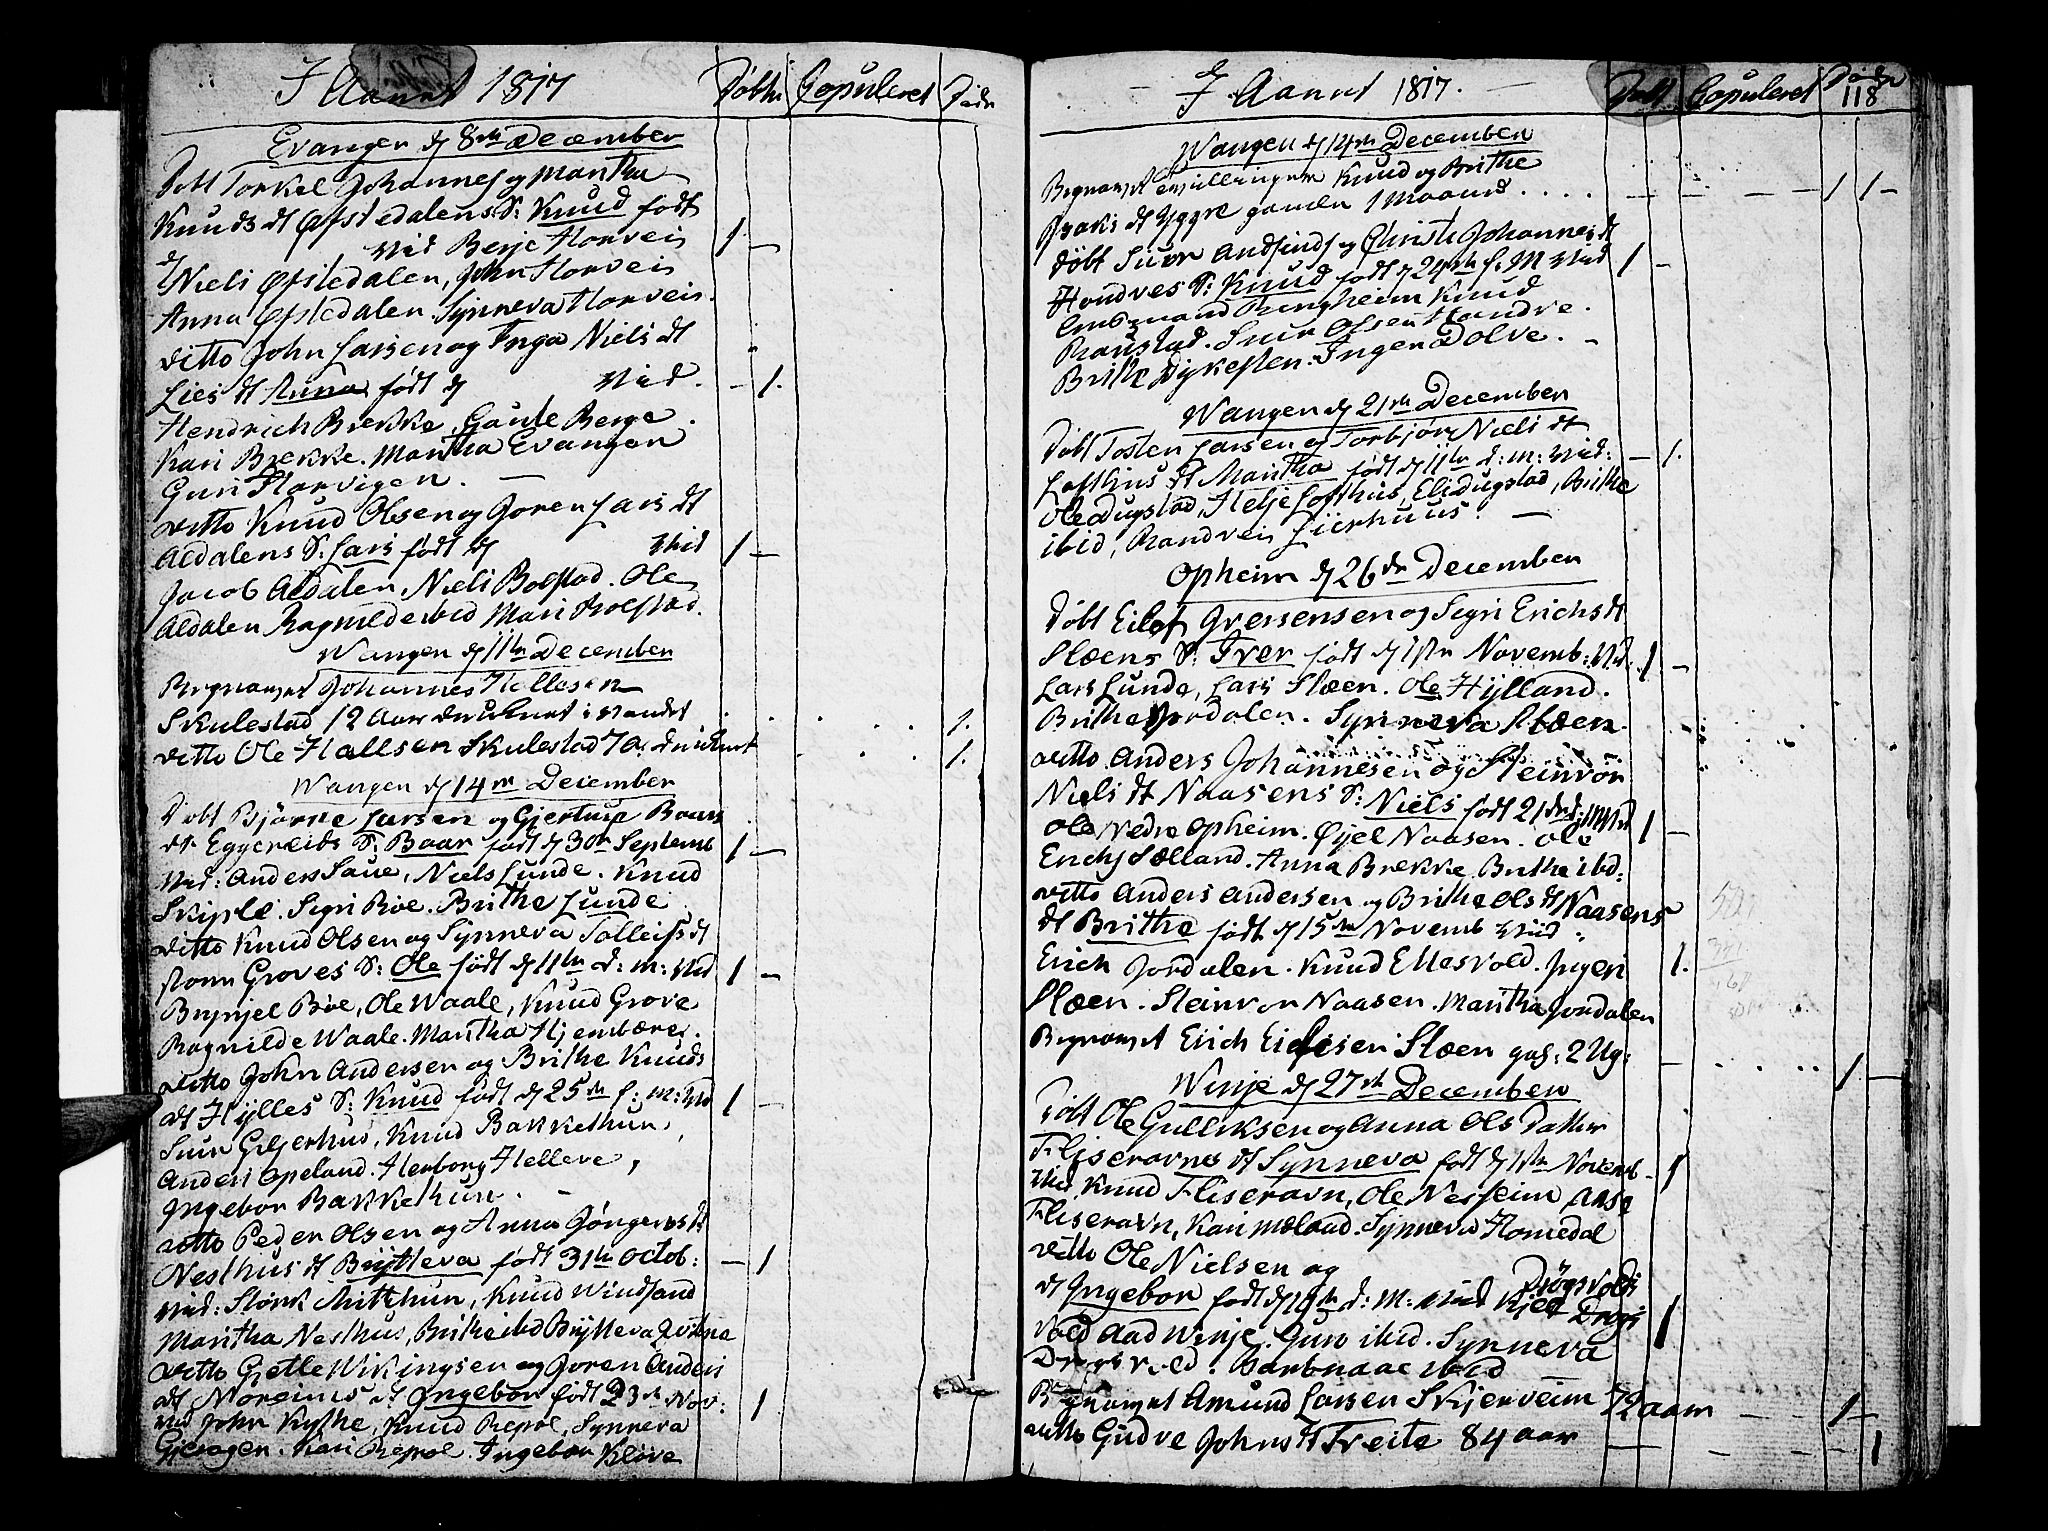 I Aaret 1817 Døbte Copuleret Døde
Evanger d 8de December
Døbt Torkel Johannes og Martha
Knuds dt Øfstedalens S: Knud født
d Vid Berje Horvei
Niels Øfstedalen, John Horvei
Anna Øfstedalen. Synneva Horvei.
ditto John Larsen og Inga Niels dt
Lies dt Anna født d Vid. - 1.
Hendrich Brekke, Gaute Berge
Kari Brekke. Martha Evanger
Guri Horvigen.
ditto Knud Olsen og Joren Lars dt
Aldalens S: Lars født d Vid 1 -
Jacob Aldalen, Niels Bolstad. Ole
Aldalen Ragnilde ibid Mari Bolstad.
Wangen d 11te December
Begravet Johannes Hellesen
Skulestad 12 Aar druknet i Vandet 1.
ditto Ole Hallsen Skulestad 7 a. druknet 1.
Wangen d 14de December
Døbt Bjørne Larsen og Gjertrup Baars
dt Eggereids S: Baar født d 30te Septemb 1 -
Vid: Anders Saue, Niels Lunde. Knud
Skiple. Segri Röe. Brithe Lunde
ditto Knud Olsen og Synneva Tolleifs dt
Groves S: Ole født d 11te d: m: Vid 1 -
Brynjel Böe, Ole Waale, Knud Grove
Ragnilde Waale. Martha Hjembære.
ditto John Andersen og Brithe Knuds
dt Hylles S: Knud født d 25de f: m: Vid 1 -
Siur Gljerhus, Knud Bakkethun,
Anders Opeland. Herborg Helleve,
Ingebor Bakkethun.
ditto Peder Olsen og Anna Jöngers dt
Nesthus dt Brytteva født 31te Octob: - 1
Vid: Störk Mitthun, Knud Windsand
Martha Nesthus, Brithe ibid Brytteva Qvitne
ditto Gjetle Wikingsen og Joren Anders
dt Noreims dt Ingebor født 23de Nov: 1
Vid John Kythe, Knud Repol, Synneva
Gjerager. Kari Repol. Ingebor Kløve
I Aaret 1817. Døbt Copuleret Døde
118
Wangen d 14de December
Begravet tvillinger Knud og Brithe
Braks dt Ygre gamle 1 Maaned 1 1 -
døbt Siur Andfinds og Christi Johannes dt
Hondves S: Knud født d 24de f. M Vid 1 -
Ringheim Knud
Rogstad. Siur Olsen Hondve.
Brithe Dykesten. Inger Dolve.
Wangen d 21de December
Døbt Tosten Larsen og Torbjør Niels dt
Lofthus dt Martha født d 11te d: m: Vid: - 1.
Ole Dugstad, Helje Lofthus, Eli Dugstad, Brithe
ibid, Randvei Lierhuus.
Opheim d 26de December
Døbt Eilef Grevsensen og Segri Erichs dt
Slæens S: Iver født d 1ste Novemb: Vid. 1 -
Lars Lunde, Lars Slæen. Ole Hylland.
Brithe Jordalen. Synneva Slæen.
ditto Anders Johannesen og Steinvor
Niels dt Naasens S: Niels født 21de d: m: Vid 1 -
Ole Nedre Opheim. Øjel Naasen. Ole
Erichs Sælland. Anna Brekke Brithe ibid:
ditto Anders Andersen og Brithe Ols dt Naasens
dt Brithe født d 15de Novemb Vid
Erich Jordalen. Knud Ellesvold. Ingeri 1.
Slæen. Steinvor Naasen. Martha Jordalen
Begravet Erich Eilefsen Slæen gal: 2 Ug: 1 -
Winje d 27de December
Døbt Ole Gulleksen og Anna Ols Datter
Fliseravnes dt Synneva født d 1ste Novemb - 1
Vid Knud Fliseravn, Ole Nesheim Aase
Fliseravn, Kari Mæland. Synneva Homedal
ditto Ole Nielsen og Drögsvolds
dt Ingebor født d 19de d: m: Vid Kjel Drogs 1
vold Aad Winje. Guro ibid. Synneva
Drogsvold. ibid
Begravet Amund Larsen Skjerveim 72 aar 1 -
ditto Gudve Johns dt Treite 84 aar 1